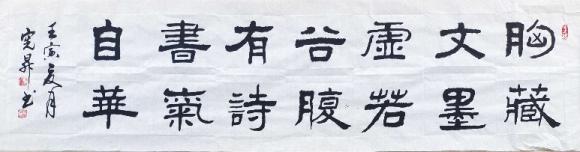 胸藏
文墨
虛若
谷腹
有詩
書氣
自華
壬寅夏月
書